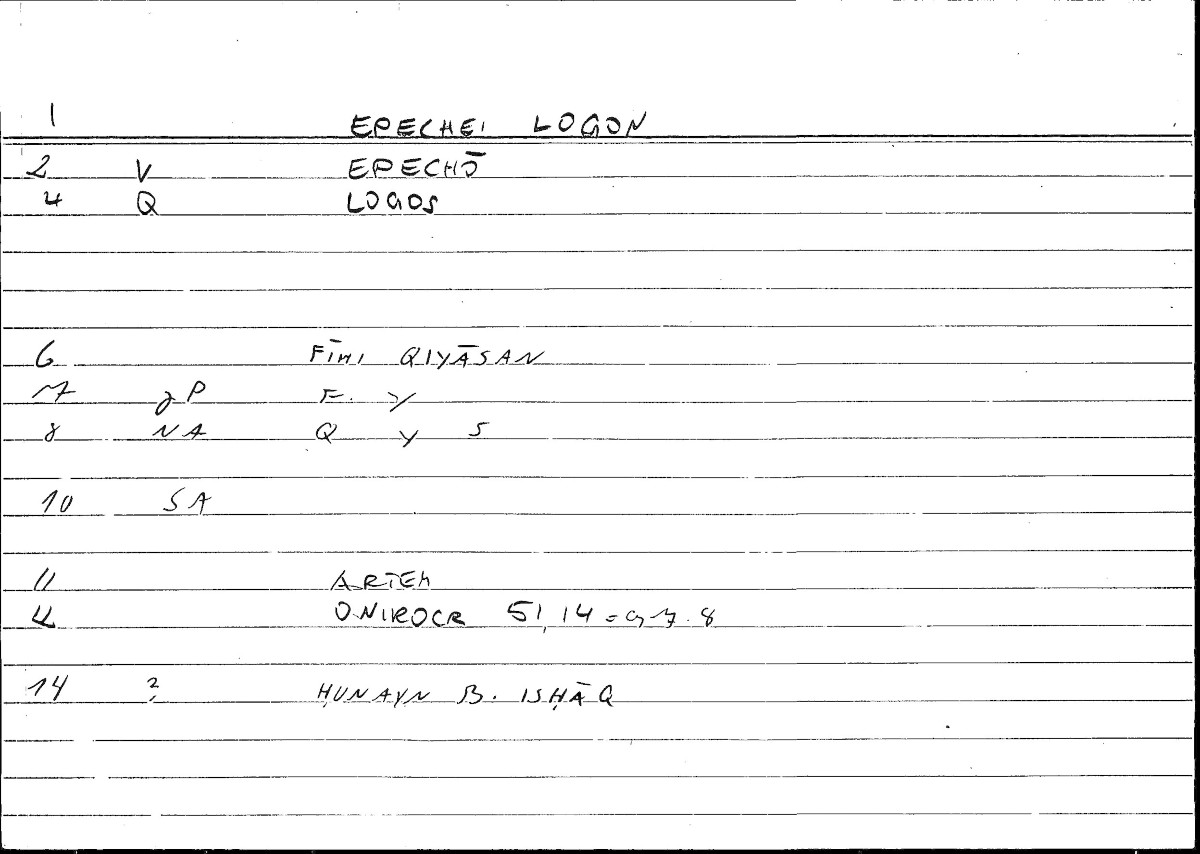 1 EPECHEI LOGON
2 V EPECHŌ
4 Q LOGOS
6 FĪHI QIYĀSAN
7 gP F. y
8 NA Q y S
10 SA
11 ARTEM
12 ONIROCR 51,14 = 97.8
14 ? ḤUNAYN B. ISḤĀQ